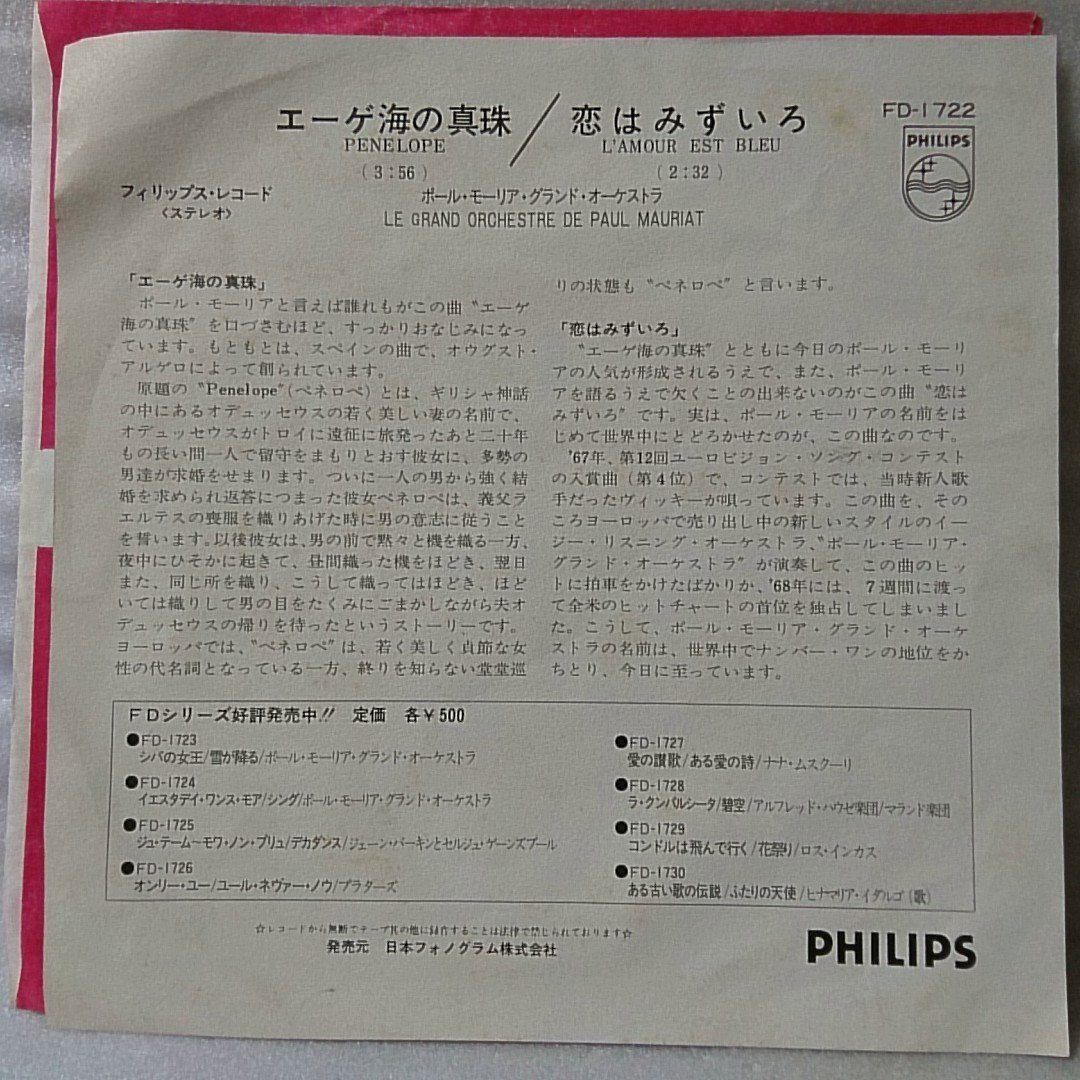 エーゲ海の真珠／恋はみずいろ
PENELOPE L'AMOUR EST BLEU
(3:56) (2:32)
FD-1722
PHILIPS
フィリップス・レコード
〈ステレオ〉
ポール・モーリア・グランド・オーケストラ
LE GRAND ORCHESTRE DE PAUL MAURIAT
「エーゲ海の真珠」
ポール・モーリアと言えば誰れもがこの曲〝エーゲ
海の真珠〟を口づさむほど、すっかりおなじみになっ
ています。もともとは、スペインの曲で、オウグスト・
アルゲロによって創られています。
原題の〝Penelope〟(ペネロペ)とは、ギリシャ神話
の中にあるオデュッセウスの若く美しい妻の名前で、
オデュッセウスがトロイに遠征に旅発ったあと二十年
もの長い間一人で留守をまもりとおす彼女に、多勢の
男達が求婚をせまります。ついに一人の男から強く結
婚を求められ返答につまった彼女ペネロペは、義父ラ
エルテスの喪服を織りあげた時に男の意志に従うこと
を誓います。以後彼女は、男の前で黙々と機を織る一方、
夜中にひそかに起きて、昼間織った機をほどき、翌日
また、同じ所を織り、こうして織ってはほどき、ほど
いては織りして男の目をたくみにごまかしながら夫オ
デュッセウスの帰りを待ったというストーリーです。
ヨーロッパでは、〝ペネロペ〟は、若く美しく貞節な女
性の代名詞となっている一方、終りを知らない堂堂巡
りの状態も〝ペネロペ〟と言います。
「恋はみずいろ」
〝エーゲ海の真珠〟とともに今日のポール・モーリ
アの人気が形成されるうえで、また、ポール・モーリ
アを語るうえで欠くことの出来ないのがこの曲〝恋は
みずいろ〟です。実は、ポール・モーリアの名前をは
じめて世界中にとどろかせたのが、この曲なのです。
'67年、第12回ユーロビジョン・ソング・コンテスト
の入賞曲(第4位)で、コンテストでは、当時新人歌
手だったヴィッキーが唄っています。この曲を、その
ころヨーロッパで売り出し中の新しいスタイルのイー
ジー・リスニング・オーケストラ、〝ポール・モーリア・
グランド・オーケストラ〟が演奏して、この曲のヒッ
トに拍車をかけたばかりか、'68年には、7週間に渡っ
て全米のヒットチャートの首位を独占してしまいまし
た。こうして、ポール・モーリア・グランド・オーケ
ストラの名前は、世界中でナンバー・ワンの地位をか
ちとり、今日に至っています。
FDシリーズ好評発売中!! 定価 各¥500
●FD-1723
シバの女王/雪が降る/ポール・モーリア・グランド・オーケストラ
●FD-1724
イエスタデイ・ワンス・モア/シング/ポール・モーリア・グランド・オーケストラ
●FD-1725
ジュ・テーム〜モワ・ノン・プリュ/デカダンス/ジェーン・バーキンとセルジュ・ゲーンズブール
●FD-1726
オンリー・ユー/ユール・ネヴァー・ノウ/プラターズ
●FD-1727
愛の讃歌/ある愛の詩/ナナ・ムスクーリ
●FD-1728
ラ・クンパルシータ/碧空/アルフレッド・ハウゼ楽団/マランド楽団
●FD-1729
コンドルは飛んで行く/花祭り/ロス・インカス
●FD-1730
ある古い歌の伝説/ふたりの天使/ヒナマリア・イダルゴ(歌)
☆レコードから無断でテープ其の他に録音することは法律で禁じられております☆
発売元 日本フォノグラム株式会社
PHILIPS